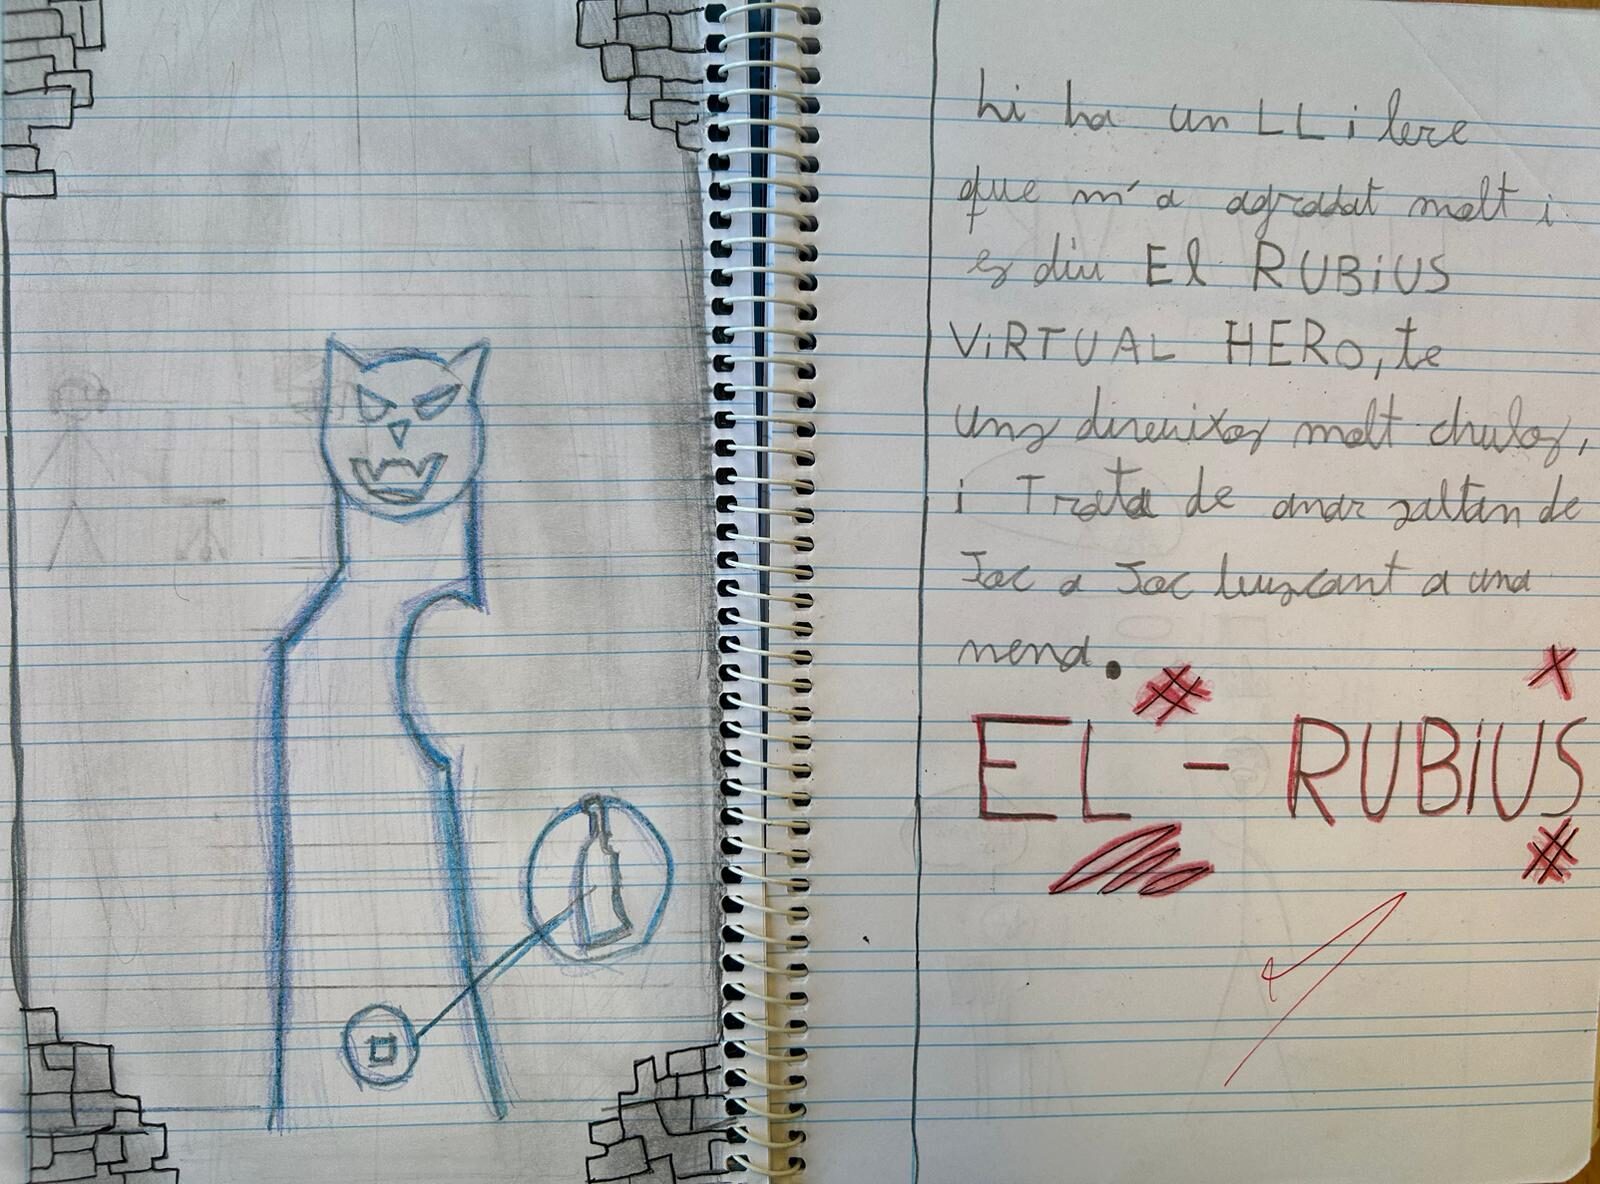 hi ha un LLibre
que m'a agradat molt i
es diu El RUBiUS
ViRTUAL HERO, te
uns direuixos molt chulos,
i Trata de anar saltan de
Joc a Joc buscant a una
nena.
EL - RUBiUS